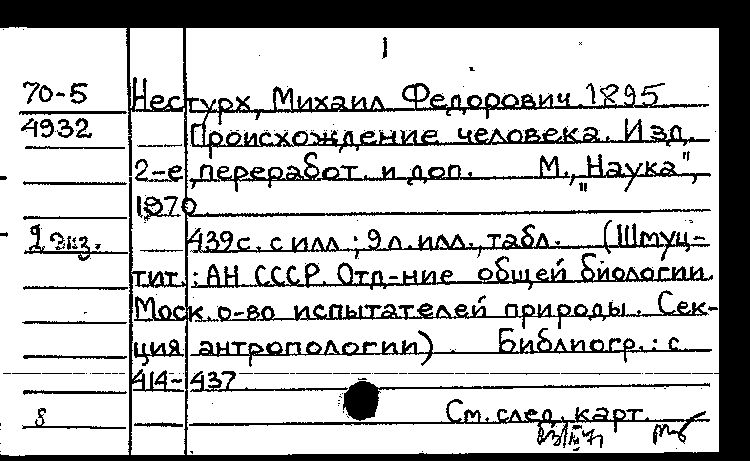 1
70-5 Нестурх, Михаил Федорович. 1895
4932 Происхождение человека. Изд.
2-е, переработ. и доп. М., "Наука",
1970
2 экз. 439 с. с илл.; 9 л. илл., табл. (Шмуц-
тит.: АН СССР. Отд-ние общей биологии.
Моск. о-во испытателей природы. Сек-
ция антропологии). Библиогр.: с.
414-437
8 См. след. карт.